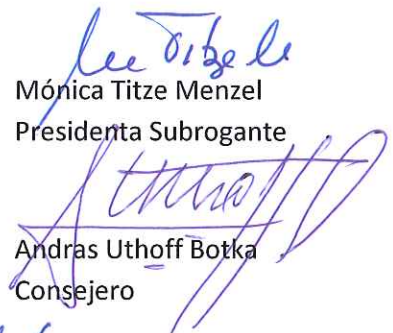 Mónica Titze Menzel
Presidenta Subrogante
Andras Uthoff Botka
Consejero